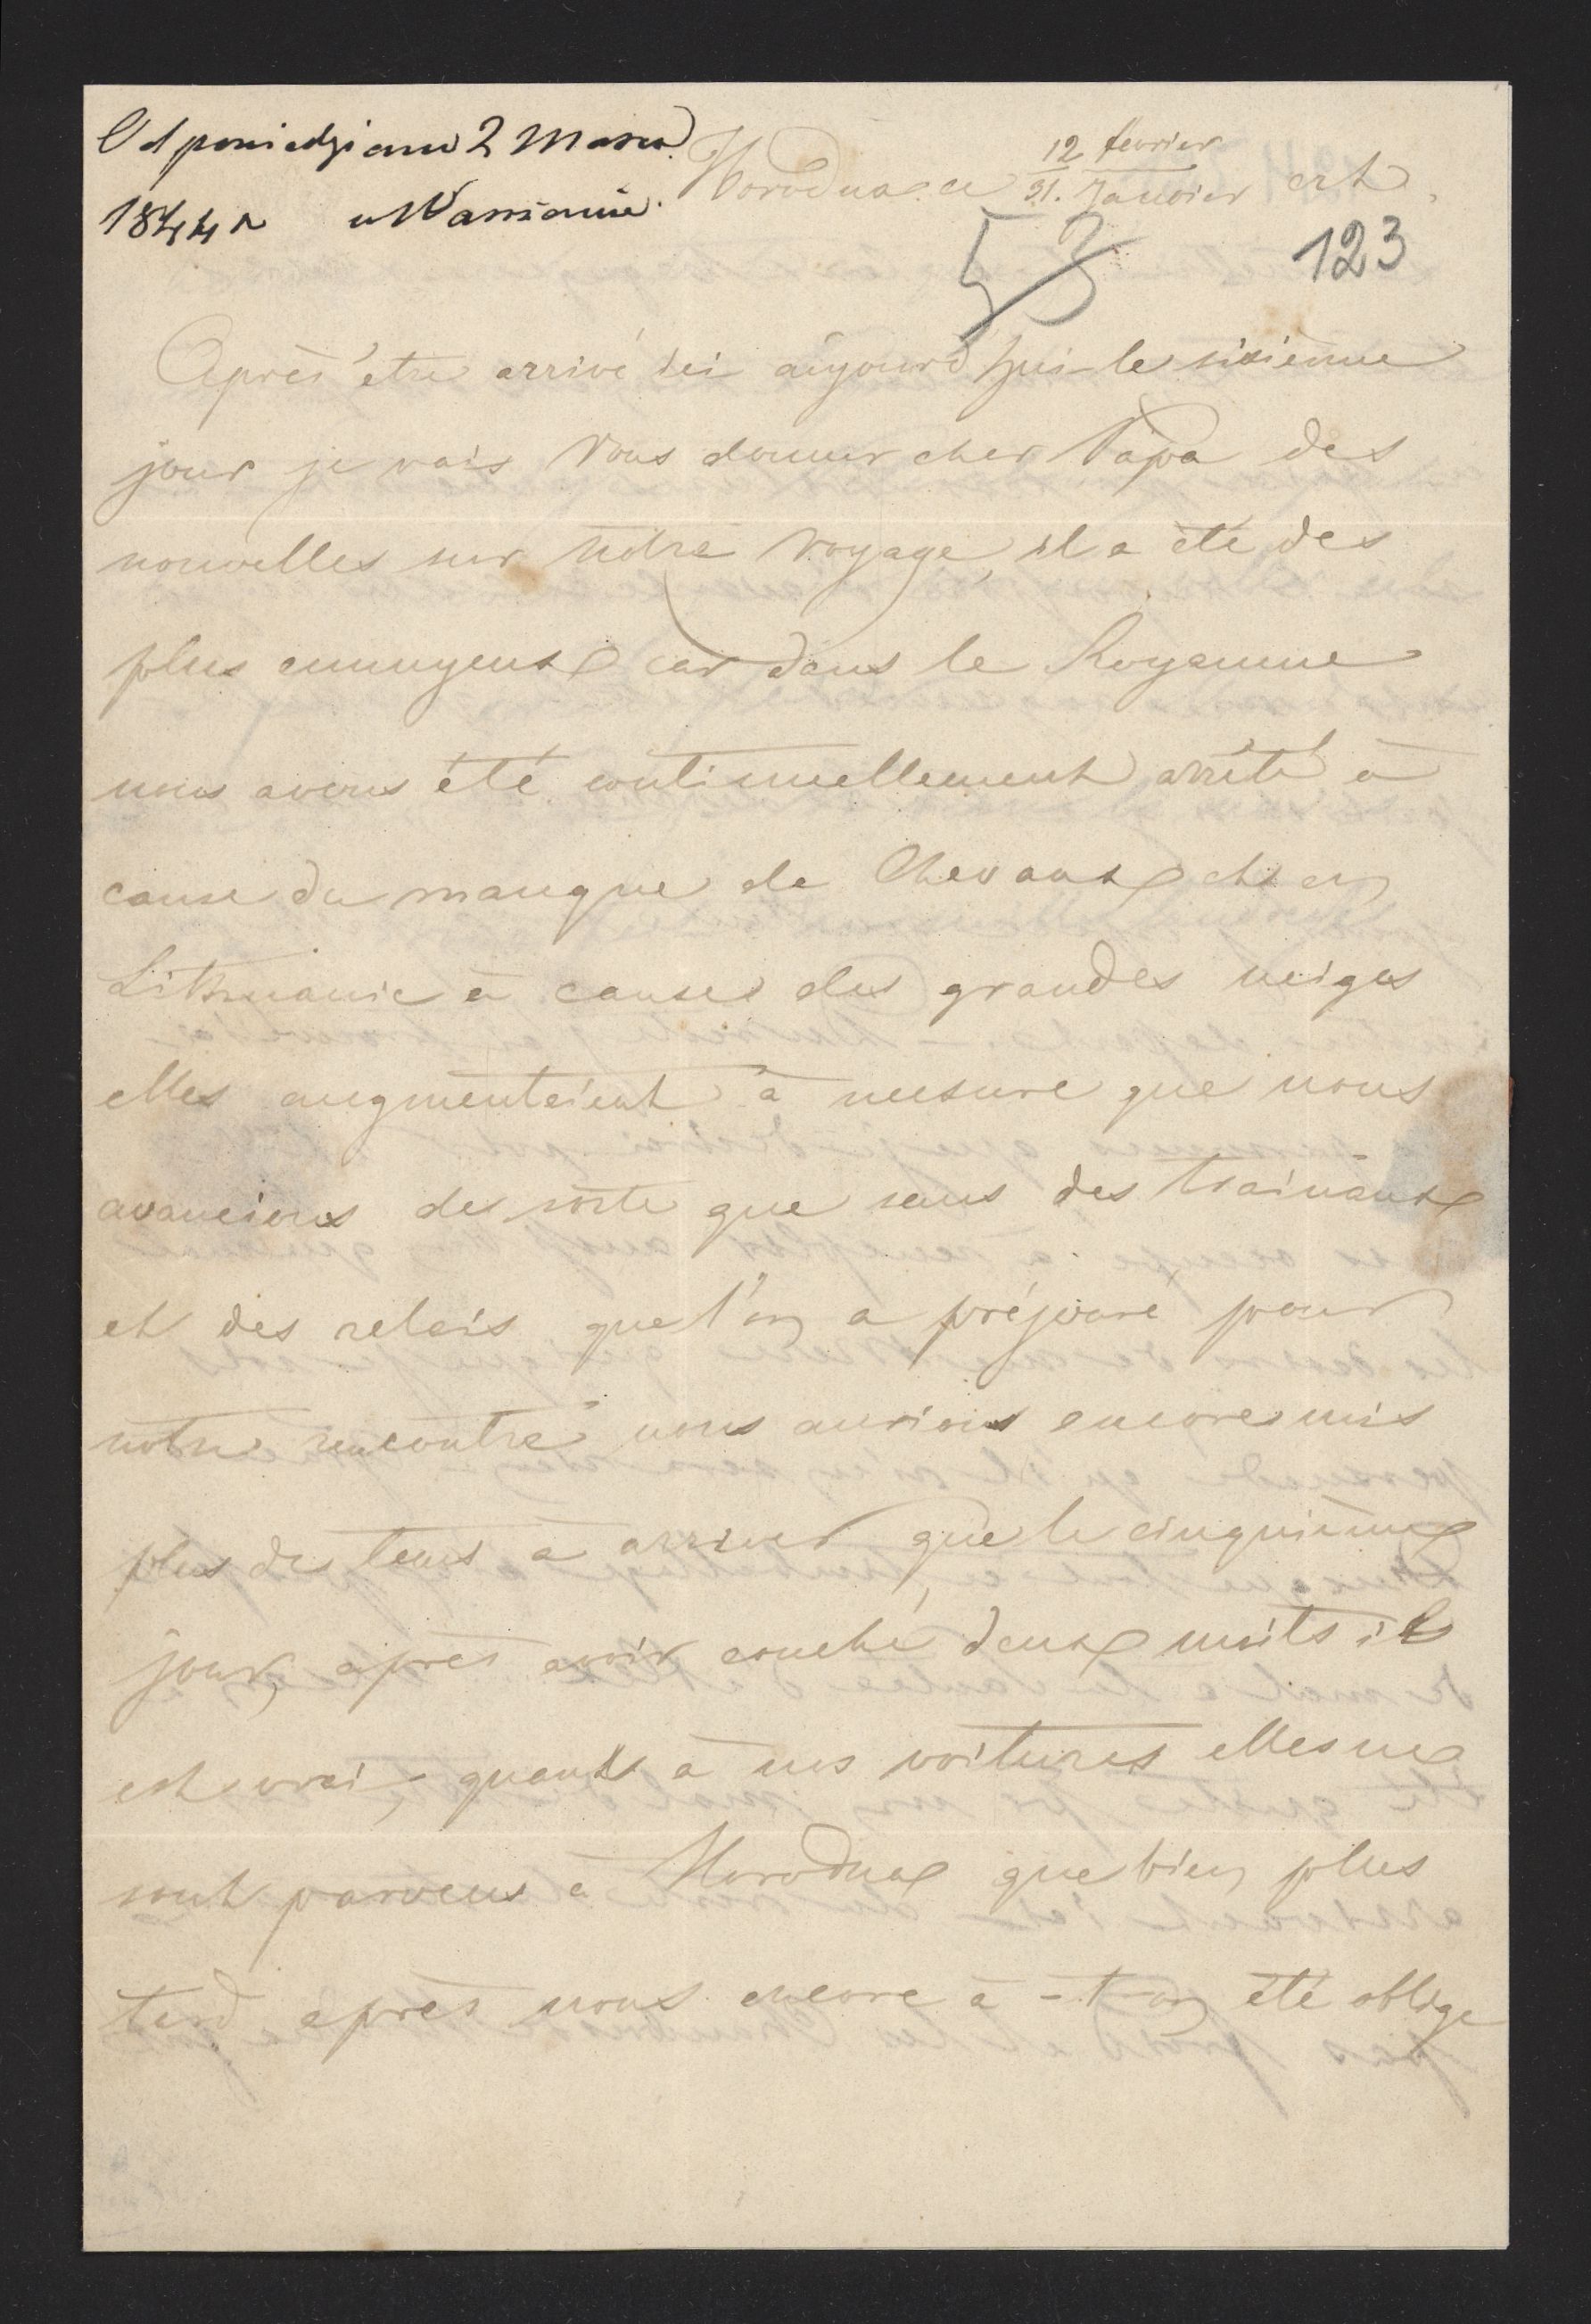 Odpowiedziano 2 Marca
1844 r w Warszawie.
Horodna ce 12 fevrier / 31. Janvier
53 123
Après être arrivé ici aujourd'hui le sixième
jour je vais Vous donner cher Papa des
nouvelles sur nôtre voyage, il a été des
plus ennuyeux car dans le Royaume
nous avons été continuellement arrêté à
cause du manque de Chevaux et en
Lithuanie à cause des grandes neiges
elles augmentaient à mesure que nous
avancions de sorte que sans des traineaux
et des relais que l'on a préparé pour
notre rencontre nous aurions encore mis
plus de tems à arriver que le cinquième
jour, après avoir couché deux nuits il
est vrai, quant à nos voitures elles ne
sont parvenus à Horodna que bien plus
tard après nous encore a-t-on été obligé